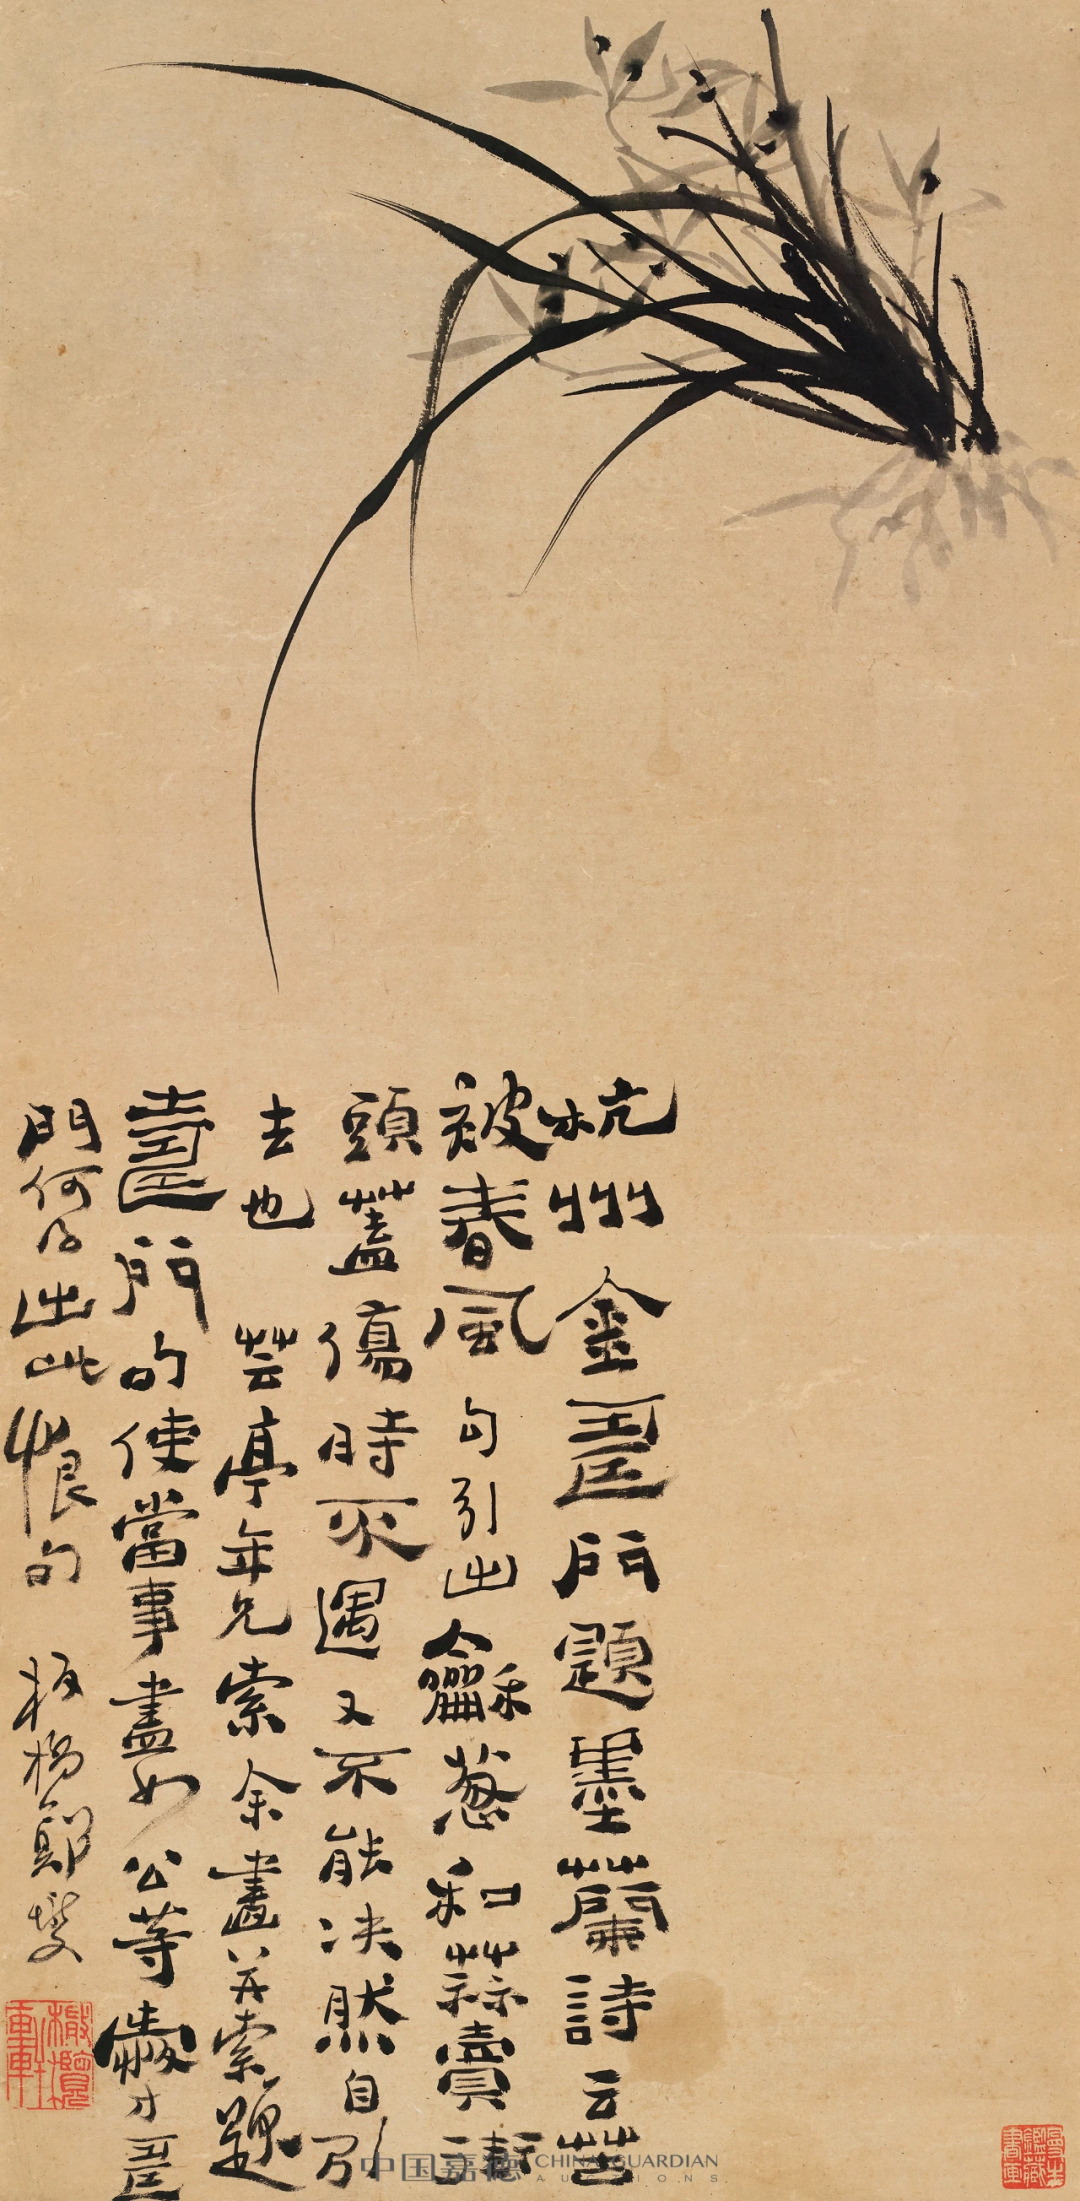 杭州金壽門題墨蘭詩云苦
被春風勾引出龢葱和蒜賣街
頭蓋傷時不遇又不能決然自引
去也芸亭年兄索余畫并索題
壽門句使當事盡如公等愛才壽
門何得出此恨句 板橋鄭燮
橄欖軒
中国嘉德 CHINA GUARDIAN
AUCTIONS